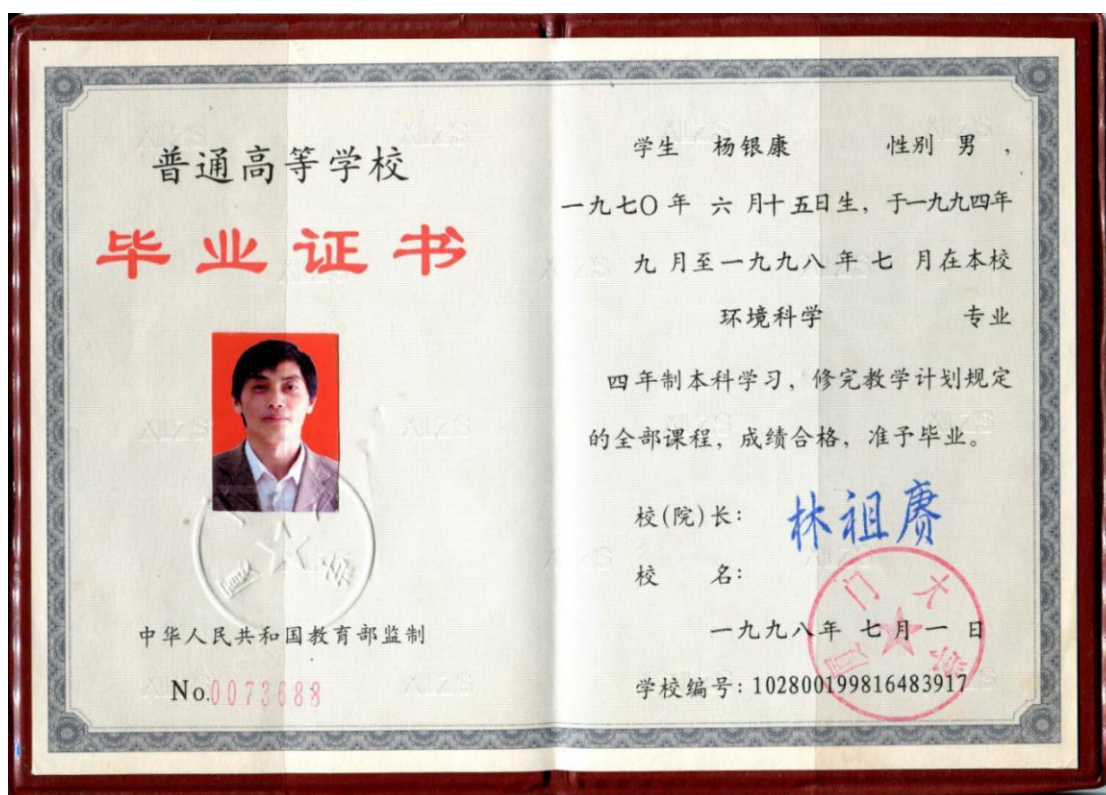 普通高等学校
毕业证书
中华人民共和国教育部监制
No.0073688
学生 杨银康 性别 男 ,
一九七〇年 六 月十五日生, 于一九九四年
九 月至一九九八 年 七 月在本校
环境科学 专业
四 年制本科学习, 修完教学计划规定
的全部课程, 成绩合格, 准予毕业。
校(院)长: 林祖赓
校 名:
厦门大学
一九九八年 七月一 日
学校编号: 102800199816483917